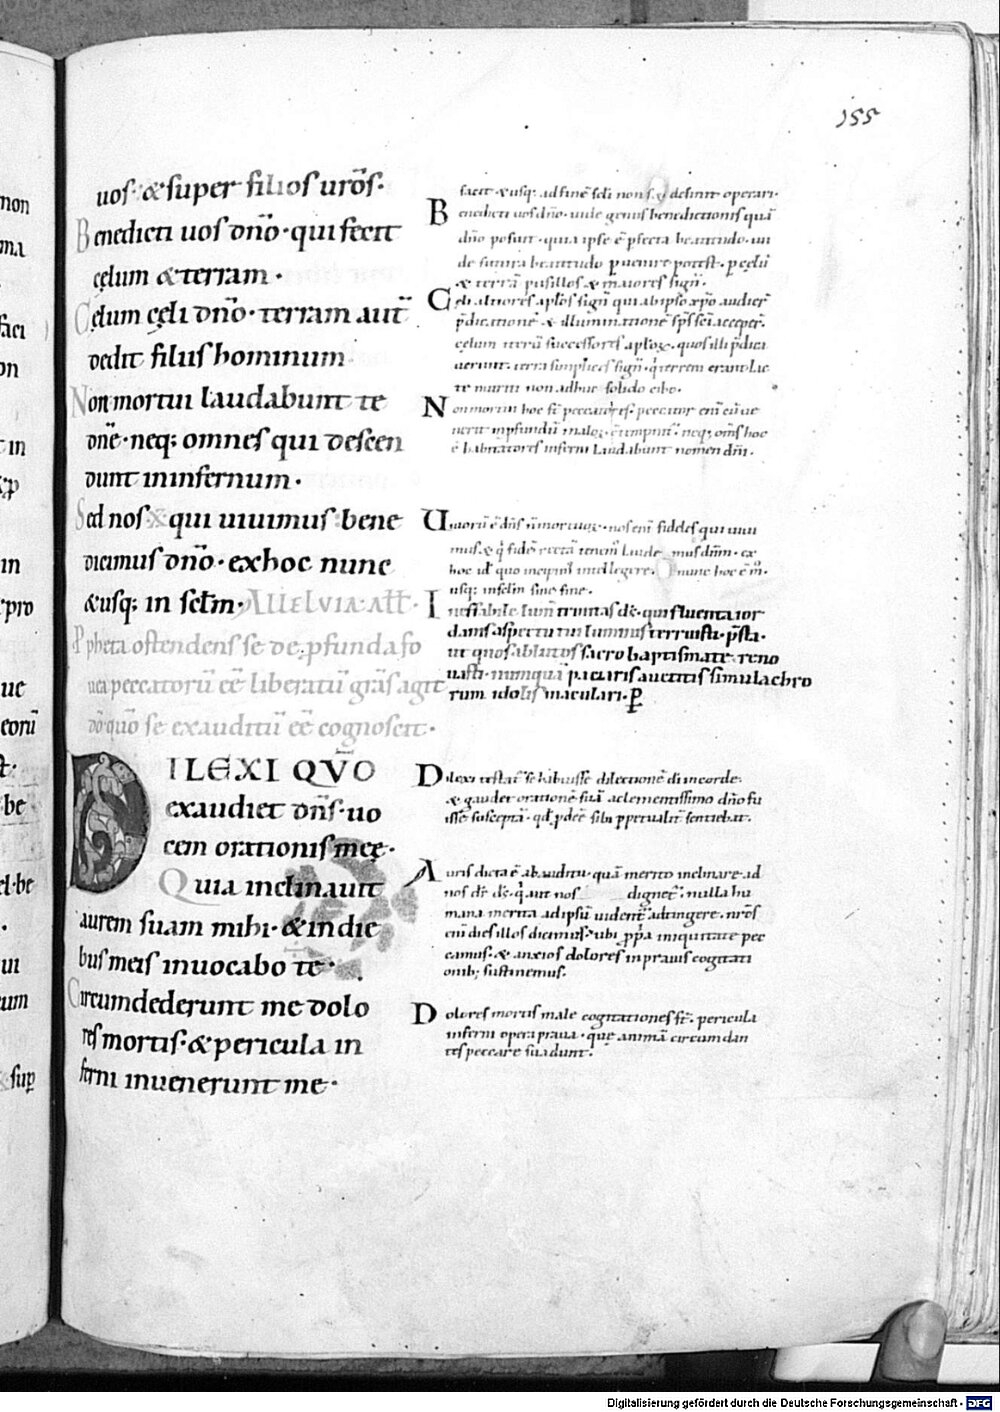 155
uos· & super filios urōs·
Benedicti uos dn̄o· qui fecit
cęlum & terram·
Cęlum cęli dn̄o· terram aut̄
dedit filiis hominum
Non mortui laudabunt te
dn̄e· neq; omnes qui descen
dunt in infernum·
Sed nos qui uiuimus· bene
dicimus dn̄o· ex hoc nunc
& usq; in sclm̄· ALLELVIA· Att̄·
Ppheta ostendens se de pfunda fo
uea peccatorū eē liberatū grās agit
dō quo se exauditū eē cognoscit·
DILEXI QVŌ
exaudiet dn̄s· uo
cem orationis meę·
Quia inclinauit
aurem suam mihi· & in die
bus meis inuocabo te·
Circumdederunt me dolo
res mortis· & pericula in
ferni inuenerunt me·
facit· & usq; ad finē scli non definit operari·
Benedicti uos dn̄o· unde genus benedictionis quā
dn̄o posuit· quia ipse ē pfecta beatitudo· un
de futura beatitudo puenire potest· p cęlū
& terrā pusillos & maiores sign̄·
Cęli altiores aplōs sign̄ qui ab ipso xp̄o audier̄
p̄dicationē & illuminationē sp̄s sc̄i acceper̄·
cęlum iterū successores aplōꝝ· quos illi p̄dica
uerunt· terra simplices sign̄· q̄ terrem erant lac
te nutriti non adhuc solido cibo·
Non mortui hoc st̄ peccatores· peccator enī cū ue
nerit in pfundū maloꝝ contempnit· neq; om̄s hoc
ē habitatores inferni laudabunt nomen dn̄i·
Uiuorū ē dn̄s n̄ mortuoꝝ· nos enī fideles qui uiui
mus· & q̄ fidē rectā tenem̄ laudemus dn̄m· ex
hoc id quo incipim̄ intellegere· nunc hoc ē m̄·
usq; in sclm̄ sine fine·
Ineffabile lum̄ trinitas ds̄· qui fluenta ior
danis aspectu tui luminis terruisti· p̄sta·
ut quos ablutos sacro baptismate reno
uasti· nunquā paciaris auctitis simulachro
rum idolis maculari· P
Dilexi testat̄ se habuisse dilectionē di in corde·
& gaudet orationē suā a clementissimo dn̄o fu
isse susceptā· qd̄ pdeē sibi ppetualit̄ sentiebat·
Auris dicta ē ab auditu· quā merito inclinare ad
nos dr̄ ds̄· q̄ aut nos dignet̄· nulla hu
mana merita ad ipsū uident̄ adtingere· nrōs
enī dies illos dicimus· ubi ppa iniquitate pec
camus· & anxios dolores in prauis cogitati
onib; sustinemus·
Dolores mortis male cogitationes st̄· pericula
inferni opera praua· que animā circumdan
tes peccare suadunt·
Digitalisierung gefördert durch die Deutsche Forschungsgemeinschaft - DFG